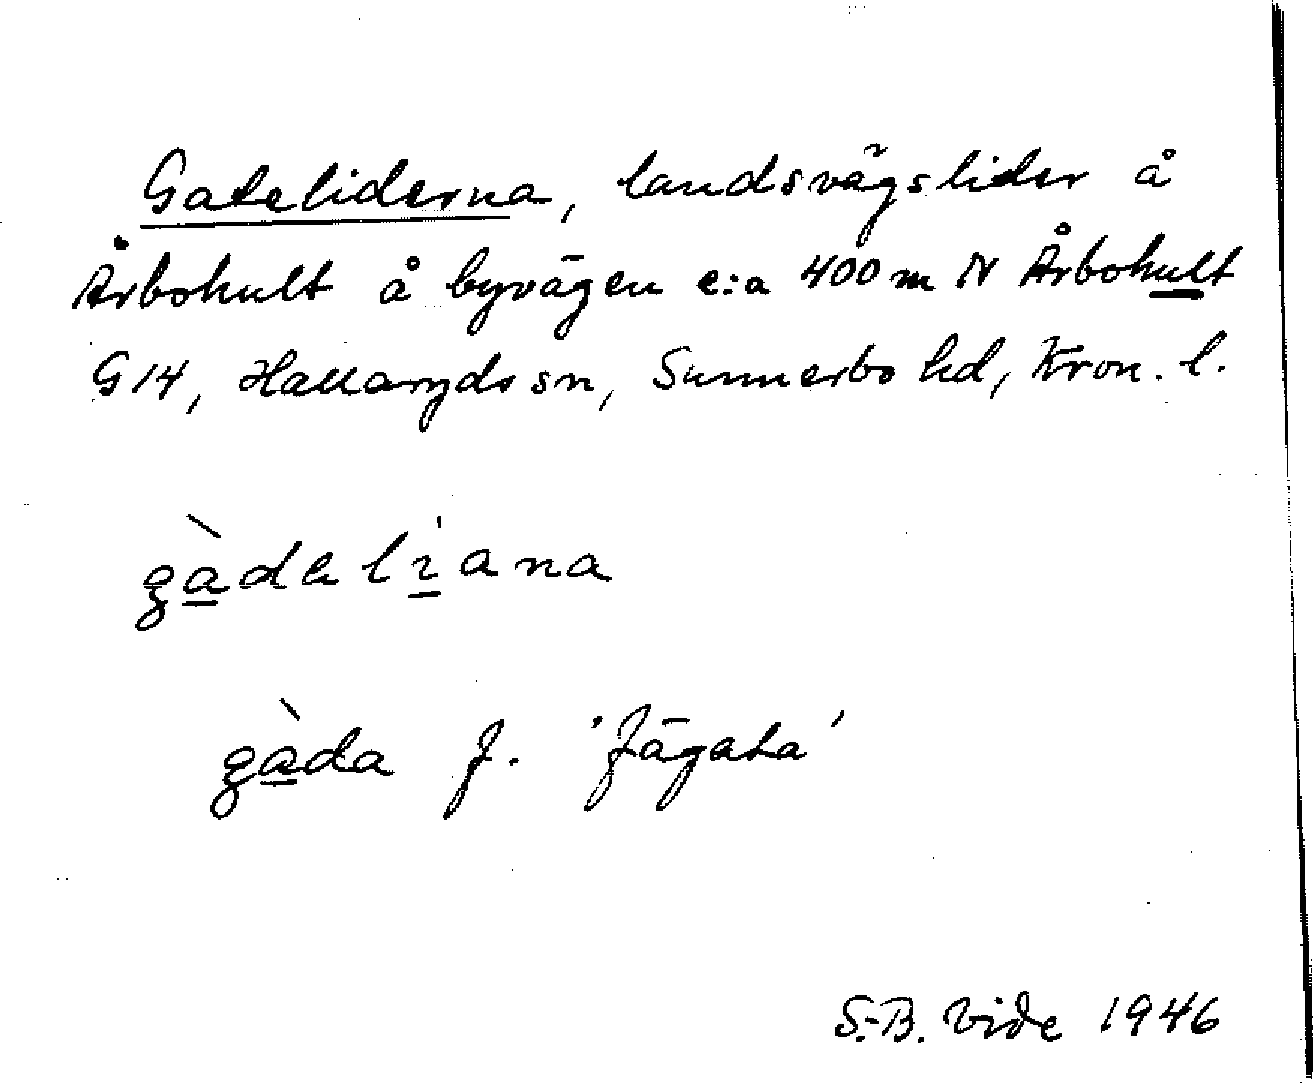 Gateliderna, landsvägslider å
Årbohult å byvägen c:a 400 m N Årbohult
G14, Hallaryds sn, Sunnerbo hd, Kron. l.
gàdalìana
gàda f. 'fägata'
S.-B. Vide 1946